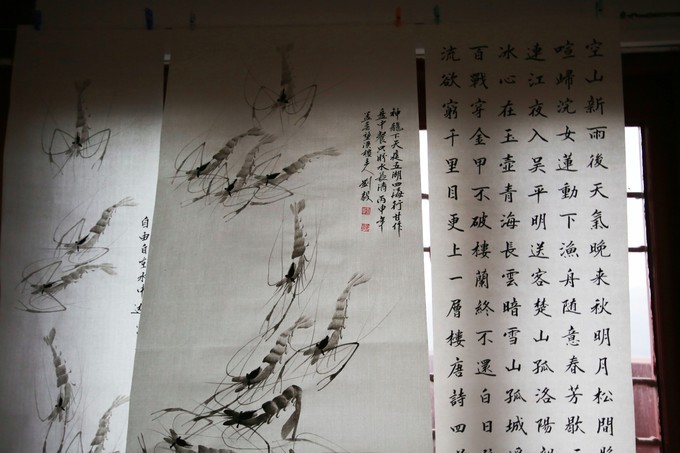 空山新雨後天氣晚来秋明月松間
喧歸浣女蓮動下漁舟随意春芳歇
連江夜入吴平明送客楚山孤洛陽
冰心在玉壺青海長雲暗雪山孤城
百戰穿金甲不破樓蘭終不還白日
流欲窮千里目更上一層樓唐詩四
神龍下天庭五湖四海行甘作
盤中餐只盼水長清丙申年
人劉毅
自由自在水中